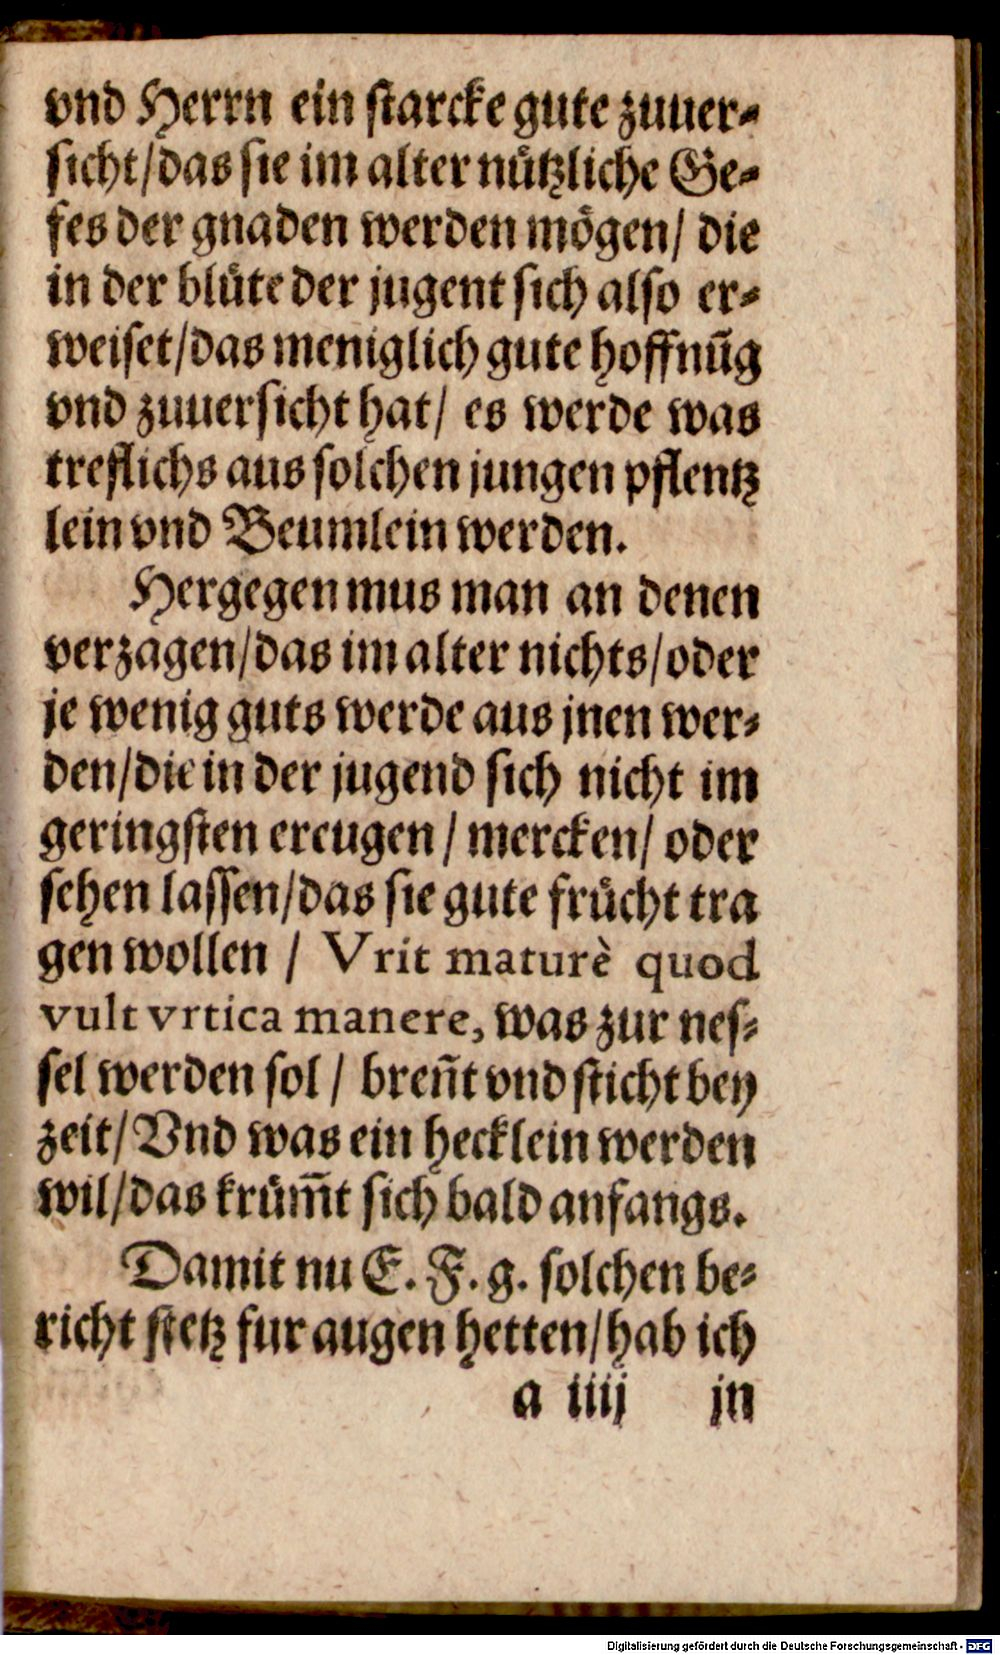 vnd Herrn ein starcke gute zuuer⸗
sicht/das sie im alter nuͤtzliche Ge⸗
fes der gnaden werden moͤgen/ die
in der bluͤte der jugent sich also er⸗
weiset/das meniglich gute hoffnūg
vnd zuuersicht hat/ es werde was
treflichs aus solchen jungen pflentz
lein vnd Beumlein werden.
Hergegen mus man an denen
verzagen/das im alter nichts/oder
je wenig guts werde aus jnen wer⸗
den/die in der jugend sich nicht im
geringsten ereugen / mercken/ oder
sehen lassen/das sie gute fruͤcht tra
gen wollen / Vrit maturè quod
vult vrtica manere, was zur nes⸗
sel werden sol / breñt vnd sticht bey
zeit/ Vnd was ein hecklein werden
wil/das kruͤm̄t sich bald anfangs.
Damit nu E. F. g. solchen be⸗
richt stetz fur augen hetten/hab ich
a iiij jn
Digitalisierung gefördert durch die Deutsche Forschungsgemeinschaft - DFG